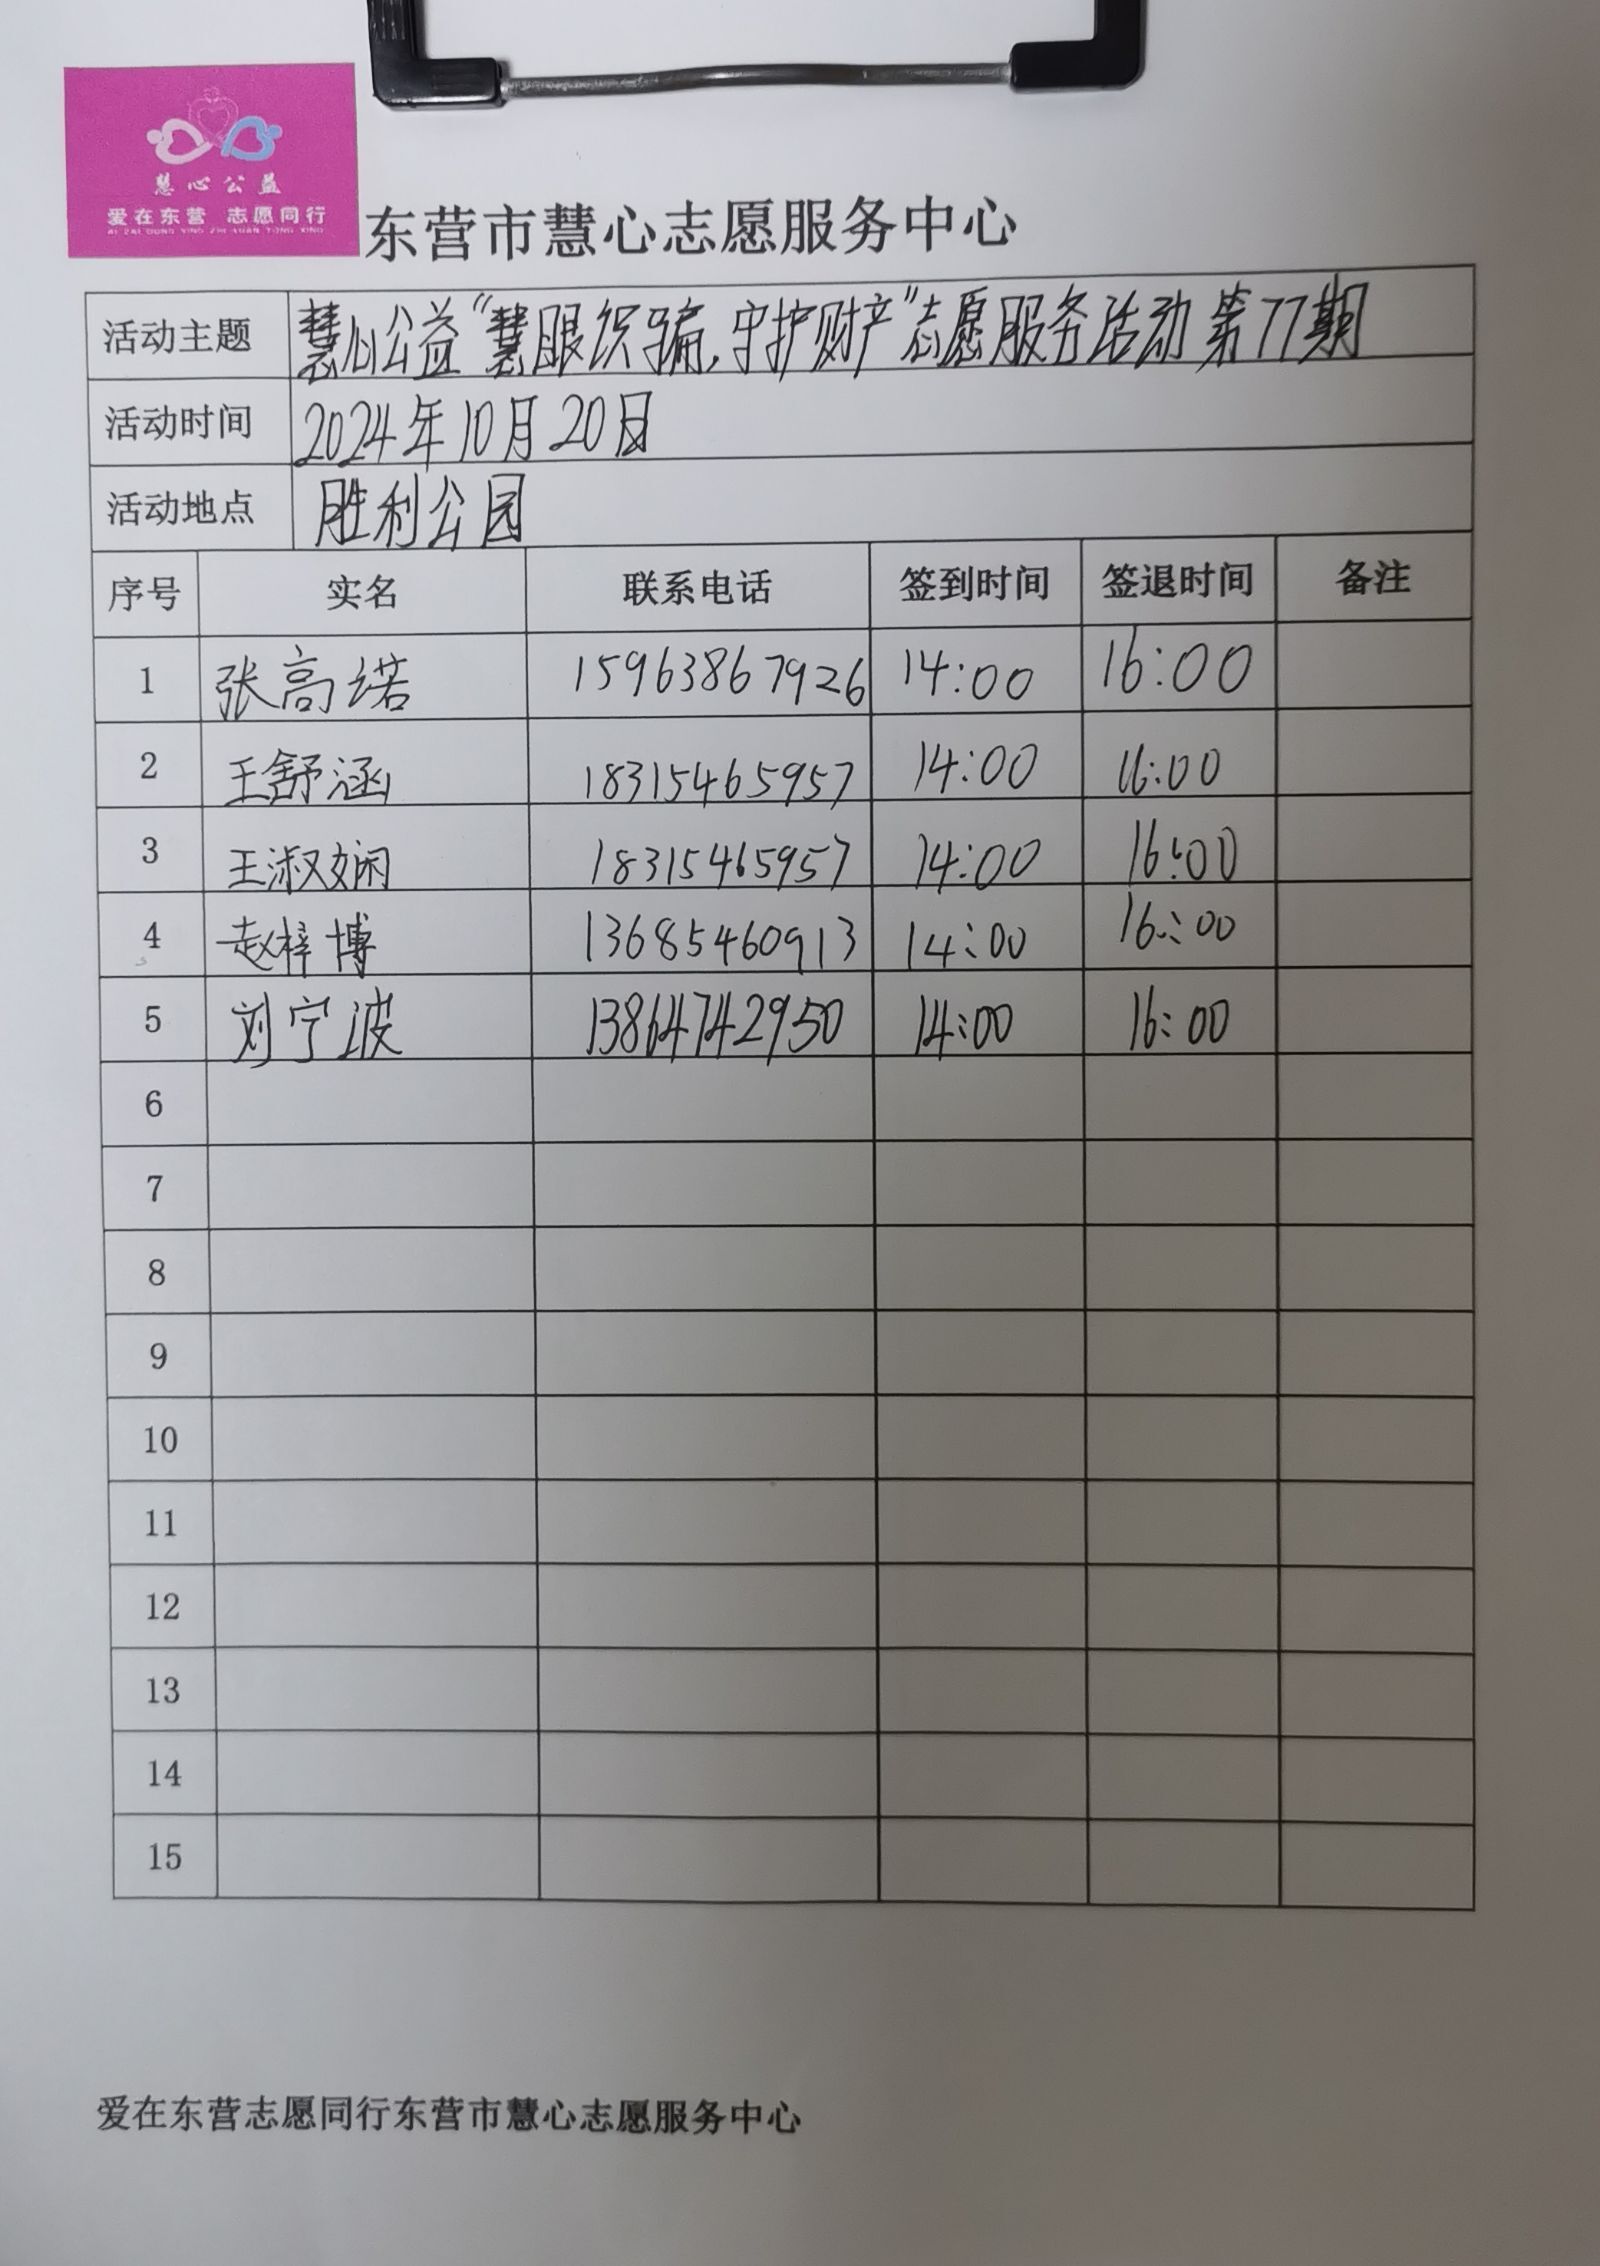 慧心公益
爱在东营 志愿同行
AI ZAI DONG YING ZHI YUAN TONG XING
东营市慧心志愿服务中心
活动主题 慧心公益“慧眼识骗,守护财产”志愿服务活动第77期
活动时间 2024年10月20日
活动地点 胜利公园
序号 实名 联系电话 签到时间 签退时间 备注
1 张高诺 15963867926 14:00 16:00
2 王舒涵 18315465957 14:00 16:00
3 王淑娴 18315465957 14:00 16:00
4 赵梓博 13685460913 14:00 16:00
5 刘宁波 13864742950 14:00 16:00
6
7
8
9
10
11
12
13
14
15
爱在东营志愿同行东营市慧心志愿服务中心